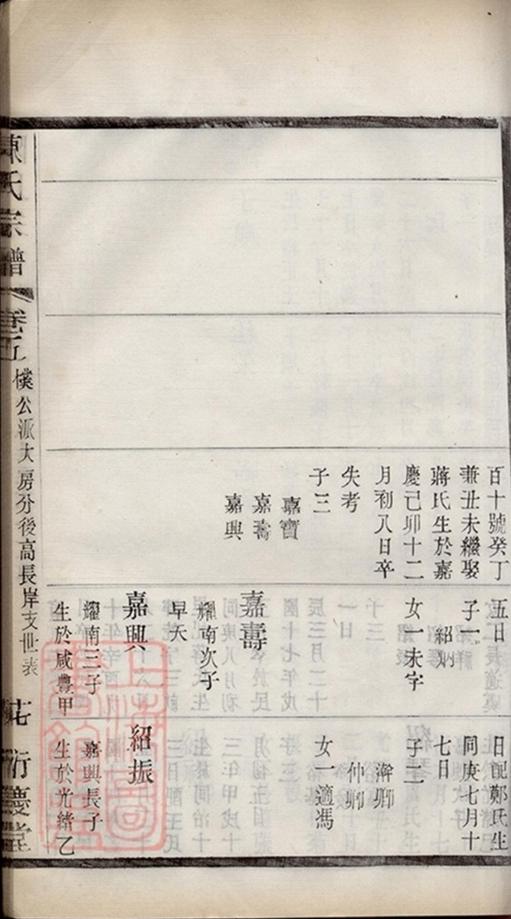 百十號癸丁
兼丑未繼娶
蔣氏生於嘉
慶己卯十二
月初八日卒
失考
子三
嘉寶
嘉壽
嘉興
五日
子一
紹炳
女一未字
嘉壽
耀南次子
早夭
嘉興
耀南三子
生於咸豐甲
日配鄭氏生
同庚七月十
七日
子二
瀚卿
仲卿
女一適馮
紹振
嘉興長子
生於光緒乙
陳氏宗譜
卷五
樸公派大房分後高長岸支世表
衍慶堂